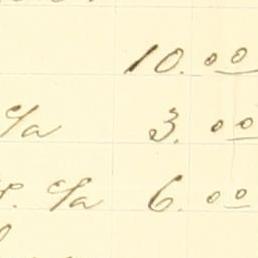 10.00
c/a 3.00
c/a 6.00